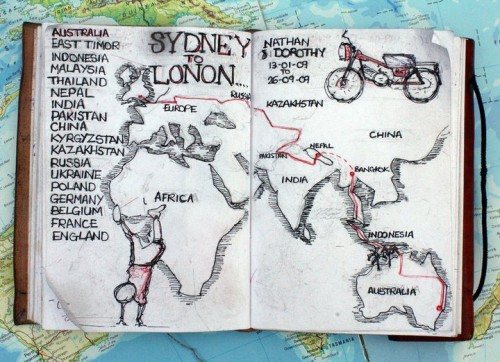 AUSTRALIA
EAST TIMOR
INDONESIA
MALAYSIA
THAILAND
NEPAL
INDIA
PAKISTAN
CHINA
KYRGYZSTAN
KAZAKHSTAN
RUSSIA
UKRAINE
POLAND
GERMANY
BELGIUM
FRANCE
ENGLAND
SYDNEY
TO
LONON....
NATHAN
& DOROTHY
13-01-09
TO
26-09-09
RUSSIA
EUROPE
KAZAKHSTAN
CHINA
PAKISTAN
NEPAL
INDIA
BANGKOK
AFRICA
INDONESIA
AUSTRALIA
TASMANIA